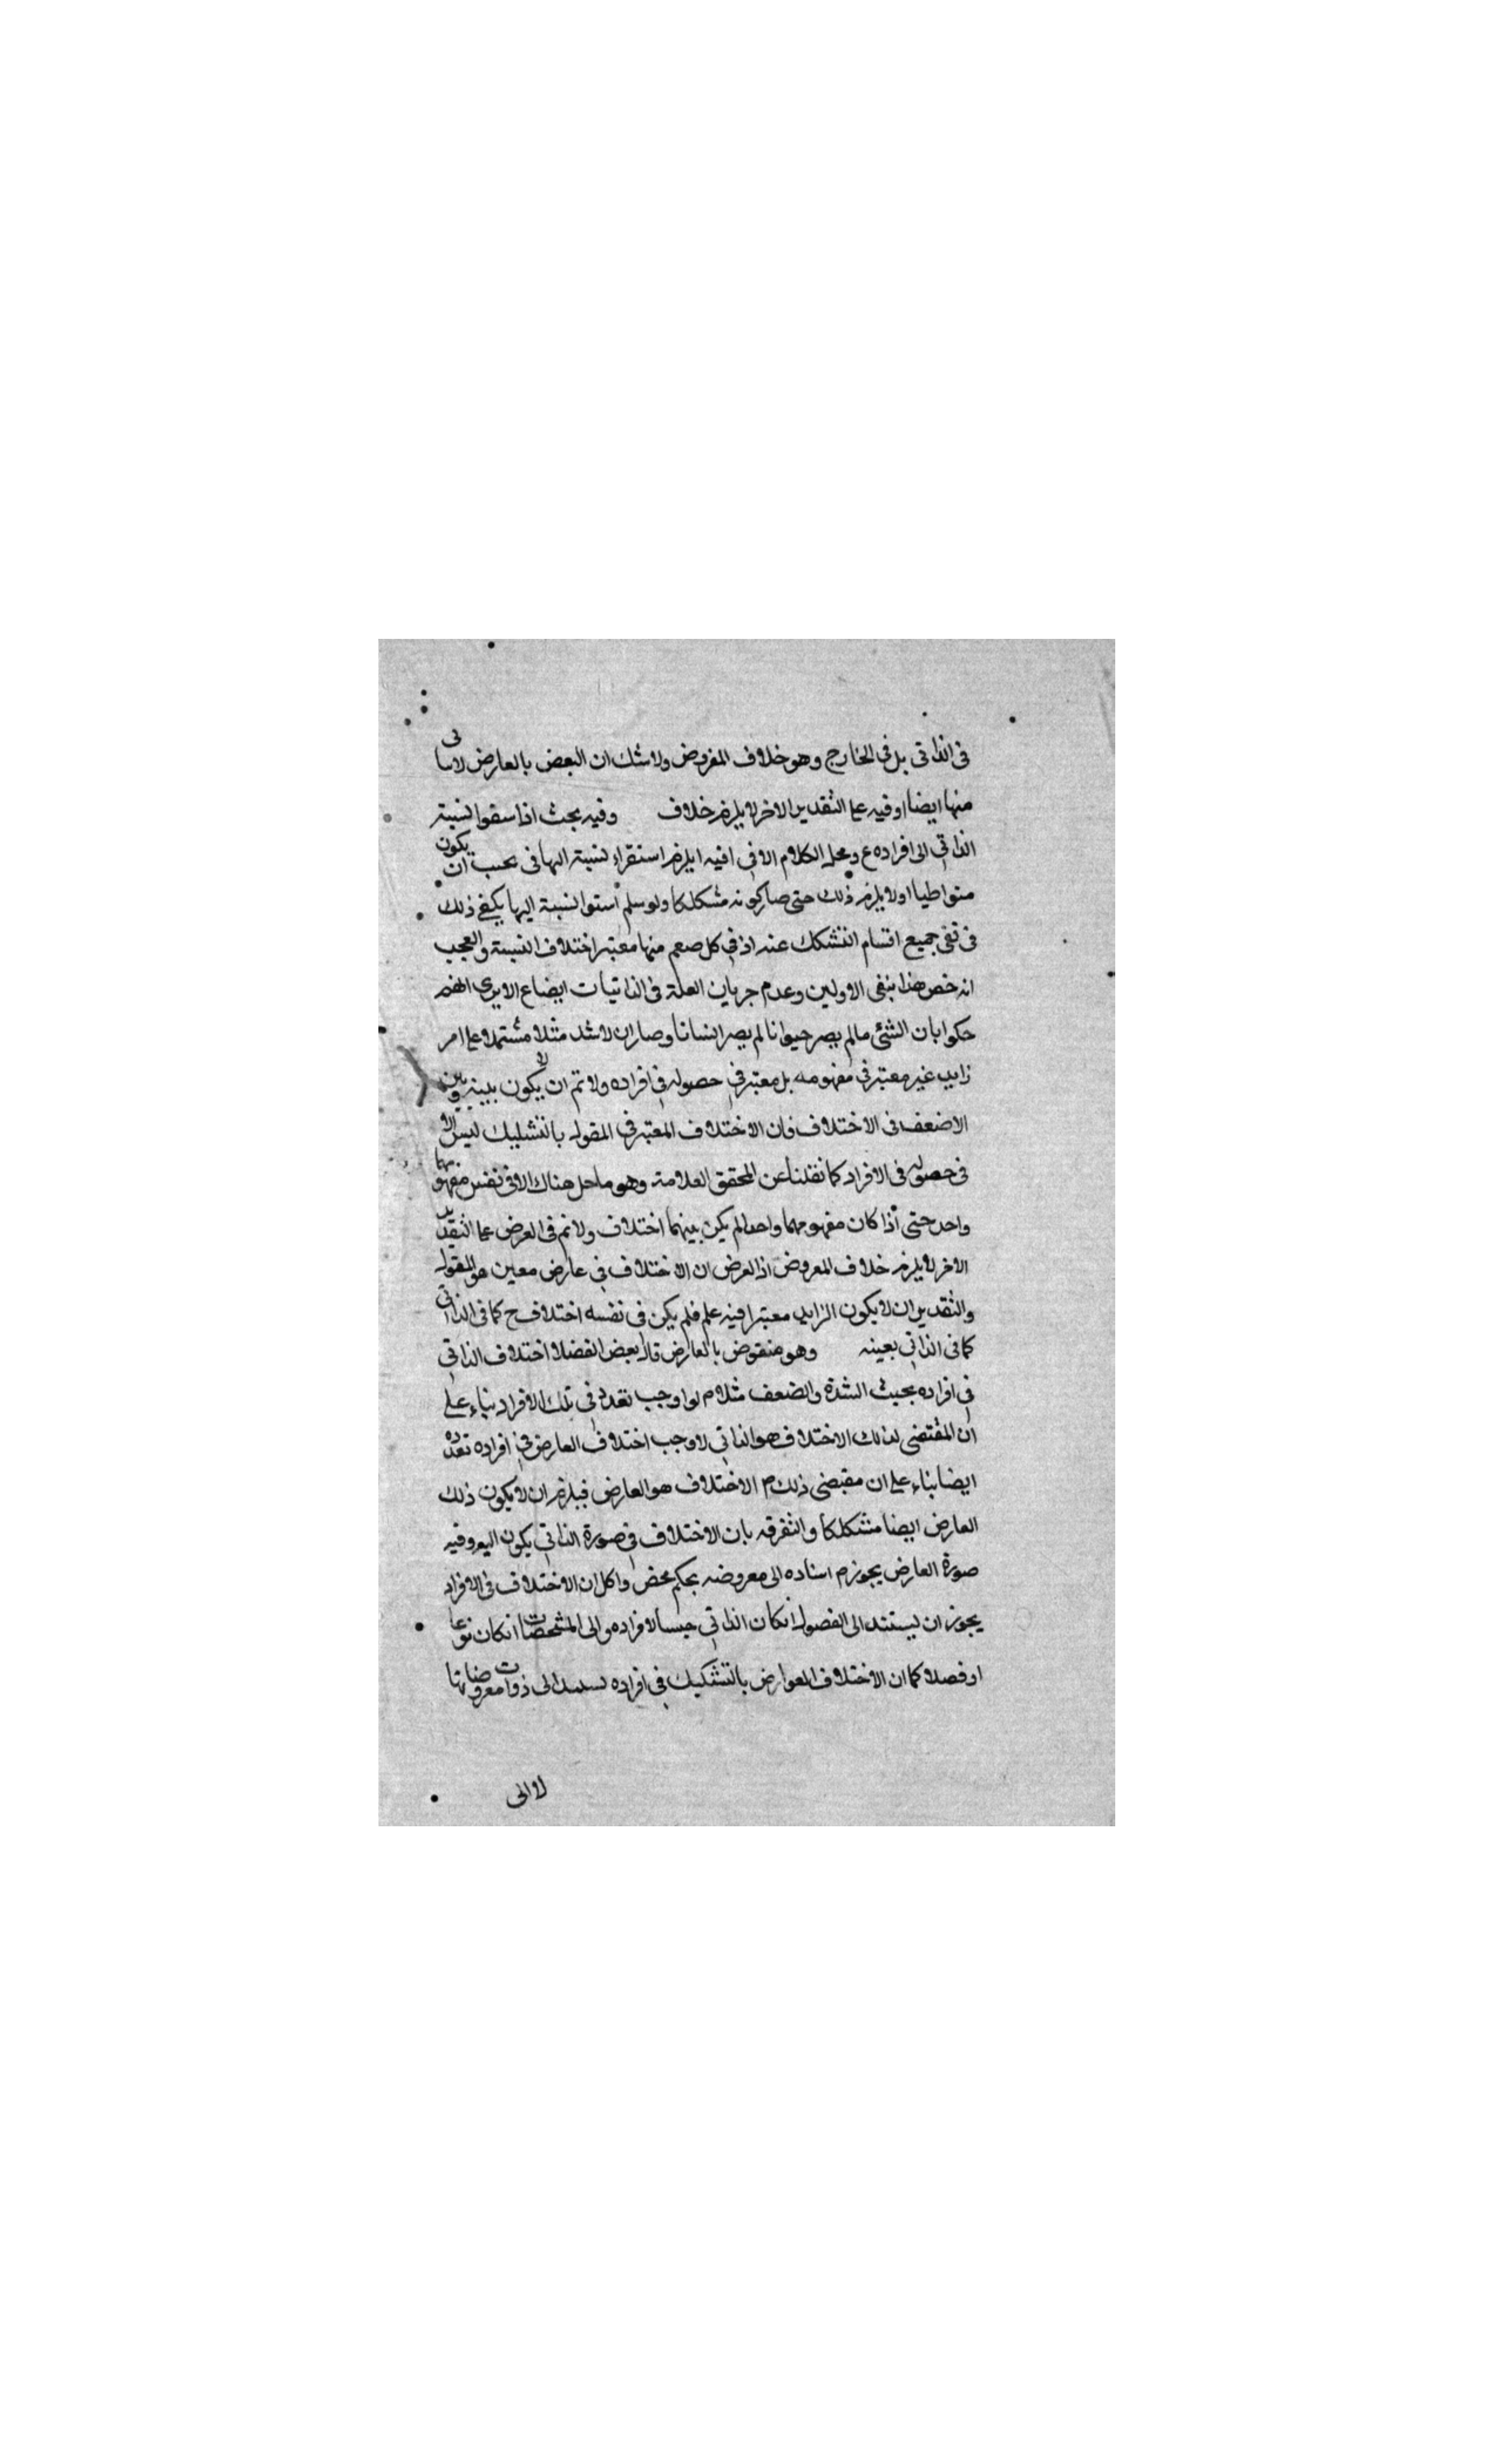 فى الذاتى بل فى الخارج وهو خلاف المفروض ولا شك ان البعض بالعارض لاساتى
منها ايضا اوفيه على التقدير الاخر لا يلزم خلاف وفيه بحث اذا سقوا نسبة
الذاتى الى افراده ع ومحل الكلام الا فى افيه ايلزم استقراء نسبته اليها فى بحسب ان يكون
متواطيا اولا يلزم ذلك حتى صار كونه مشككا ولو سلم استوا نسبة اليها يكفى ذلك
فى نفى جميع اقسام التشكك عنه اذ فى كل منها معتبر اختلاف النسبة والعجب
انه خص هذا بنفى الاولين وعدم جريان العلة فى الذاتيات ايضا ع الا يرى انهم
حكموا بان الشئى مالم يصر حيوانا لم يصر انسانا وصار ان لاشد مثلا مشتملا على امر
زايد غير معتبر فى مفهومه بل معتبر فى حصوله فى افراده ولا تم ان لا يكون بينه وبين
الاضعف فى الاختلاف فان الاختلاف المعتبر فى المقول بالتشكيك ليس الا
فى حصوله فى الافراد كما نقلنا عن المحقق العلامة وهو ماحل هناك الا فى نفس مفهومهما
واحد حتى اذا كان مفهومهما واحدا لم يكن بينهما اختلاف ولا تم فى العرض على التقدير
الاخر لا يلزم خلاف المعروض اذ العرض ان الاختلاف فى عارض معين هو المقول
والتقدير ان لا يكون الزايد معتبرا فيه علم فلم يكن فى نفسه اختلاف ح كما فى الذاتى
كما فى الذاتى بعينه وهو منقوض بالعارض قال بعض الفضلا اختلاف الذاتى
فى افراده بحيث الشدة والضعف مثلا م لو اوجب تعدد فى تلك الافراد بناء على
ان المقتضى لذلك الاختلاف هو الذاتى لاوجب اختلاف العارض فى افراده تعدده
ايضا بناء على ان مقتضى ذلك م الاختلاف هو العارض فيلزم ان لا يكون ذلك
العارض ايضا مشككا والتفرقه بان الاختلاف فى صورة الذاتى يكون اليه وفيه
صورة العارض يجوز م اسناده الى معروضه بحكم محض واكل ان الاختلاف فى الافراد
يجوز ان يستند الى الفصول انكان الذاتى جنسا لافراده والى المشخصات انكان نوعا
او فصلا كما ان الاختلاف العوارض بالتشكيك فى افراده الى ذوات معروضاتها
لا الى